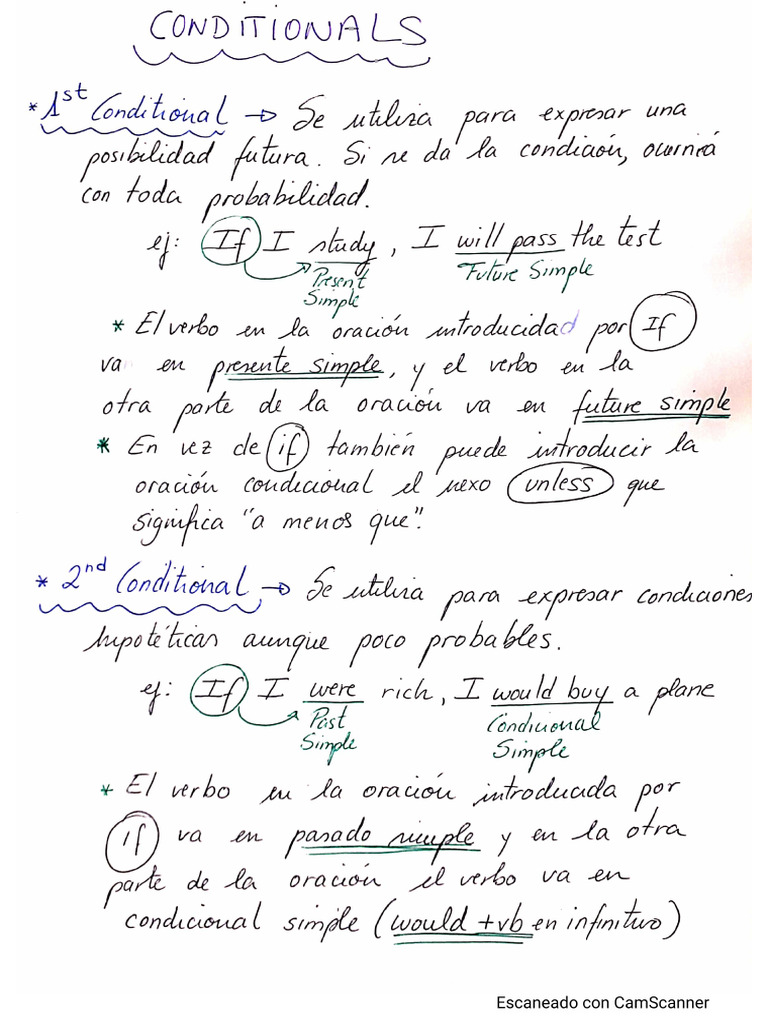 CONDITIONALS
* 1st Conditional → Se utiliza para expresar una
posibilidad futura. Si se da la condición, ocurrirá
con toda probabilidad.
ej: If I study, I will pass the test
Present Future Simple
Simple
* El verbo en la oración introducidad por If
va en presente simple, y el verbo en la
otra parte de la oración va en future simple
* En vez de if también puede introducir la
oración condicional el nexo unless que
significa "a menos que".
* 2nd Conditional → Se utiliza para expresar condiciones
hipotéticas aunque poco probables.
ej: If I were rich, I would buy a plane
Past Condicional
Simple Simple
* El verbo en la oración introducida por
if va en pasado simple y en la otra
parte de la oración el verbo va en
condicional simple (would + vb en infinitivo)
Escaneado con CamScanner